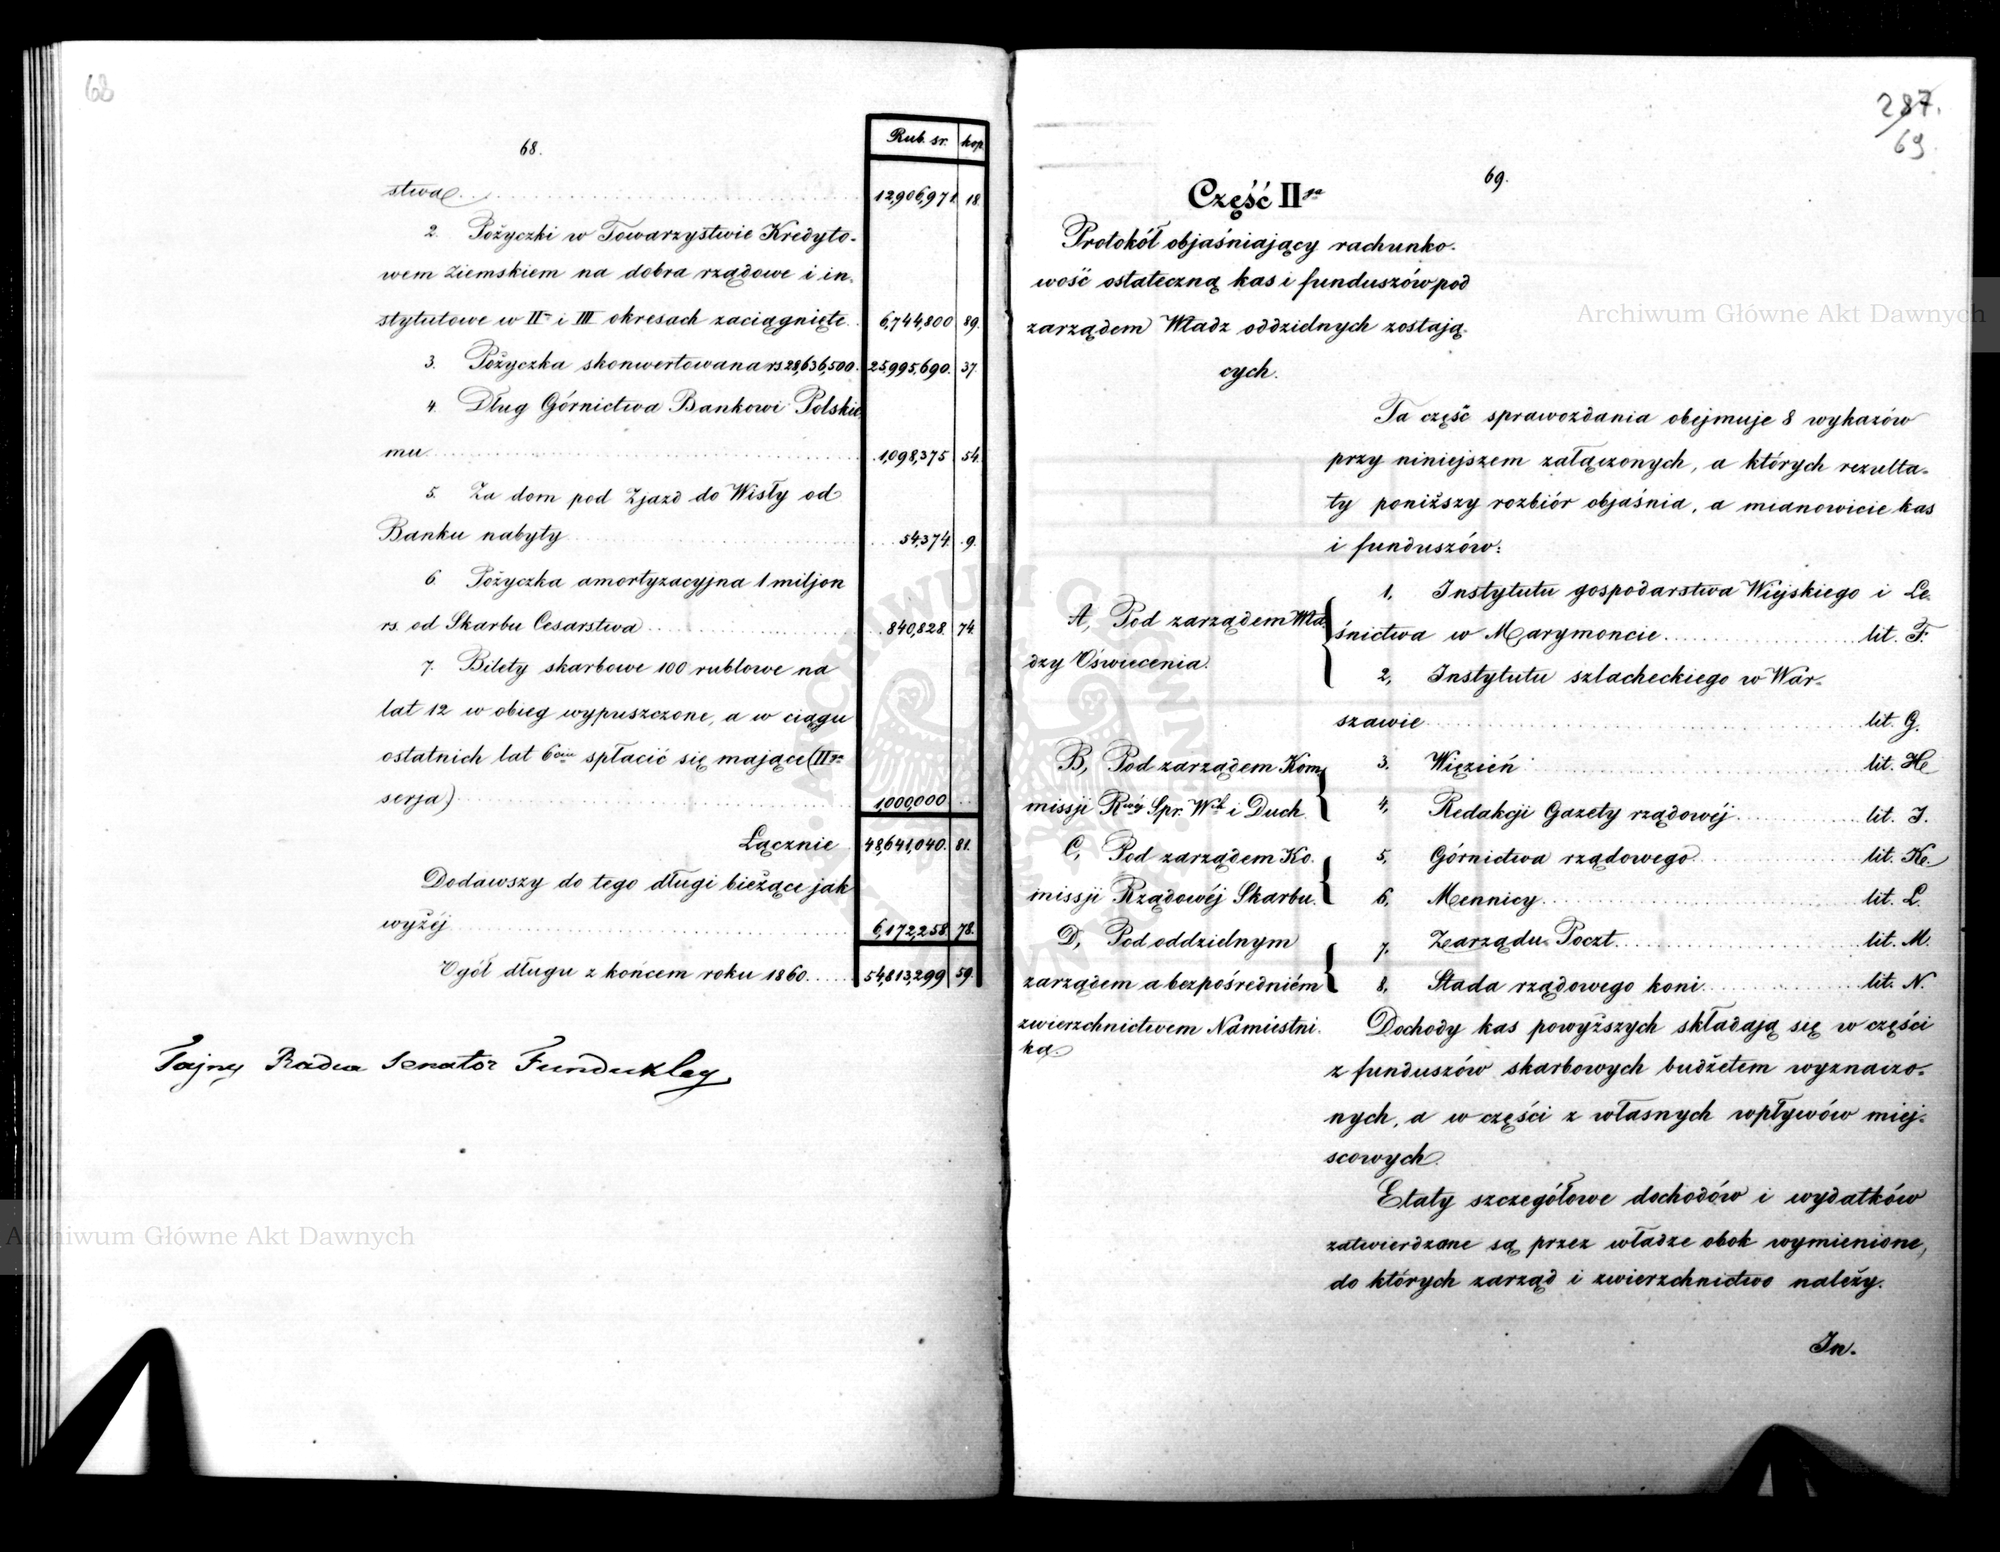 68
68.
Rub. sr. kop.
stwa 12,906,971 18.
2. Pożyczki w Towarzystwie Kredyto-
wem Ziemskiem na dobra rządowe i in-
stytutowe w II i III okresach zaciągnięte 6,744,800 89.
3. Pożyczka skonwertowana rs 28,636,500. 25,995,690. 37.
4. Dług Górnictwa Bankowi Polskie
mu 1,098,375 54.
5. Za dom pod Zjazd do Wisły od
Banku nabyty 54,374. 9.
6. Pożyczka amortyzacyjna 1 miljon
rs. od Skarbu Cesarstwa 840,828. 74.
7. Bilety skarbowe 100 rublowe na
lat 12 w obieg wypuszczone, a w ciągu
ostatnich lat 6ciu spłacić się mające (IIga
serja) 1,000,000
Łącznie 48,641,040. 81.
Dodawszy do tego długi bieżące jak
wyżéj 6,172,258. 78.
Ogół długu z końcem roku 1860 54,813,299 59.
Tajny Radca Senator Fundukley
287.
69
69.
Część IIga
Protokół objaśniający rachunko-
wość ostateczną kas i funduszów pod
zarządem Władz oddzielnych zostają-
cych.
Ta część sprawozdania obejmuje 8 wykazów
przy niniejszem załączonych, a których rezulta-
ty poniższy rozbiór objaśnia, a mianowicie kas
i funduszów:
A, Pod zarządem Wła-
dzy Oświecenia.
1, Instytutu gospodarstwa Wiejskiego i Le-
śnictwa w Marymoncie lit. F.
2, Instytutu szlacheckiego w War-
szawie lit. G.
B, Pod zarządem Kom-
missji Rwéj Spr. Wch i Duch.
3. Więzień lit. H
4, Redakcji Gazety rządowéj lit. I.
C, Pod zarządem Ko-
missji Rządowéj Skarbu.
5, Górnictwa rządowego lit. K
6, Mennicy lit. L.
D, Pod oddzielnym
zarządem a bezpośredniém
zwierzchnictwem Namiestni-
ka.
7. Zarządu Poczt lit. M.
8, Stada rządowego koni lit. N.
Dochody kas powyższych składają się w części
z funduszów skarbowych budżetem wyznaczo-
nych, a w części z własnych wpływów miej-
scowych.
Etaty szczegółowe dochodów i wydatków
zatwierdzane są przez władze obok wymienione,
do których zarząd i zwierzchnictwo należy.
In-
Archiwum Główne Akt Dawnych
Archiwum Główne Akt Dawnych